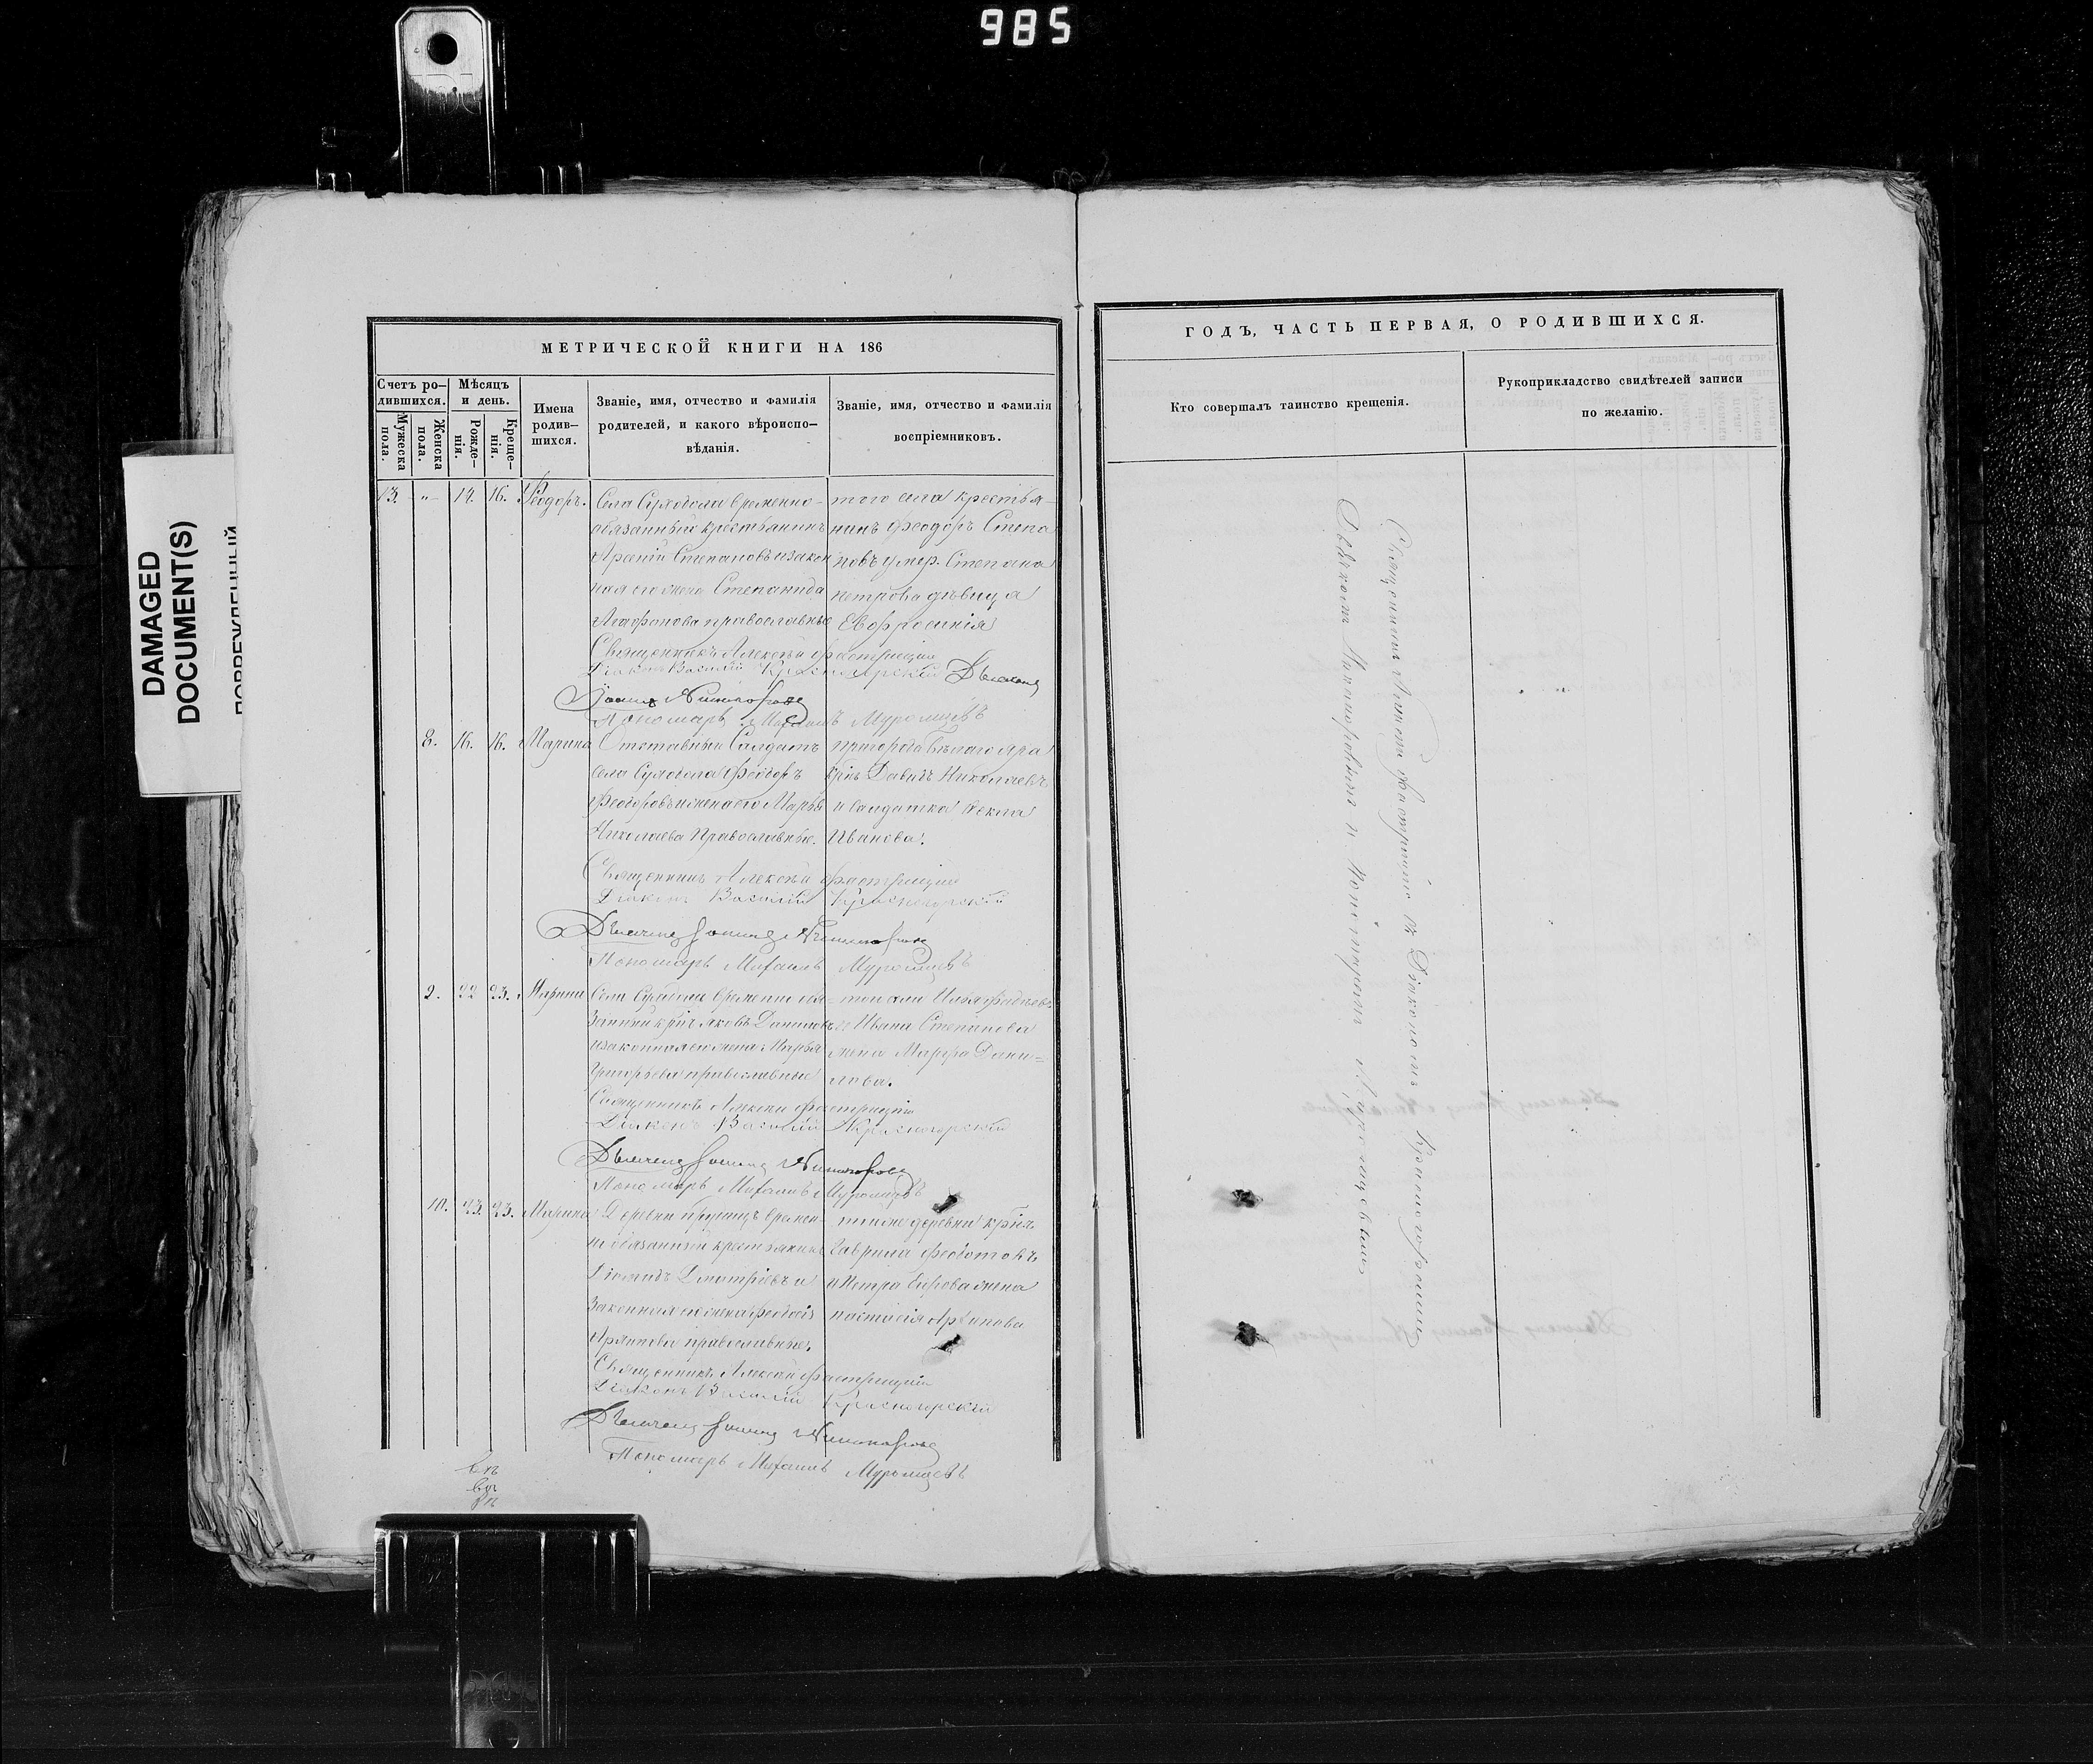 985
DAMAGED
DOCUMENT(S)
ПОВРЕЖДЕННЫЙ
МЕТРИЧЕСКОЙ КНИГИ НА 186
Счетъ ро-
дившихся.
Мужеска
пола.
Женска
пола.
Мѣсяцъ
и день.
Рожде-
нія.
Креще-
нія.
Имена
родив-
шихся.
Званіе, имя, отчество и фамилія
родителей, и какого вѣроиспо-
вѣданія.
Званіе, имя, отчество и фамилія
воспріемниковъ.
13. -"- 14. 16. Ѳеодоръ.
Села Суходола временно-
обязанный крестьянинъ
Арсеній Степановъ и закон
ная его жена Степанида
Агафонова православные
того села крестья-
нинъ Феодоръ Степа
новъ умер. Степана
Петрова дѣвица
Евфросинія
Священникъ Алексѣй
Діаконъ Василій Красногорскій Дьячекъ
Іоаннъ Никифоровъ
Пономарь Михаилъ Муромцевъ
8. 16. 16. Марина
Отставный Салдатъ
села Суходола Феодоръ
Феодоровъ и жена его Марья
Николаева Православные.
пригорода Бѣлаго Яра
Давидъ Николаевъ
и салдатка Ѳекла
Иванова.
Священникъ Алексѣй
Діаконъ Василій Красногорскій
Дьячекъ Іоаннъ Никифоровъ
Пономарь Михаилъ Муромцевъ
9. 22 23. Марина
Села Суходола временно обя-
занный Яковъ Даниловъ
и законная его жена Марья
Григорьева православные
Илья
и Ивана Степанова
жена Марфа Дани-
лова.
Священникъ Алексѣй
Діаконъ Василій Красногорскій
Дьячекъ Іоаннъ Никифоровъ
Пономарь Михаилъ Муромцевъ
10. 23. 23. Марина
Деревни времен-
но обязанный крестьянинъ
Діомидъ Дмитріевъ и
законная его жена Феодосія
православные.
деревни
Гаврила Федотовъ
и Петра жена
Священникъ Алексѣй
Діаконъ Василій Красногорскій
Дьячекъ Іоаннъ Никифоровъ
Пономарь Михаилъ Муромцевъ
ГОДЪ, ЧАСТЬ ПЕРВАЯ, О РОДИВШИХСЯ.
Кто совершалъ таинство крещенія.
Рукоприкладство свидѣтелей записи
по желанію.
Священникъ Алексѣй съ Діакономъ Красногорскимъ
Дьячкомъ Никифоровымъ и Пономаремъ Муромцевымъ